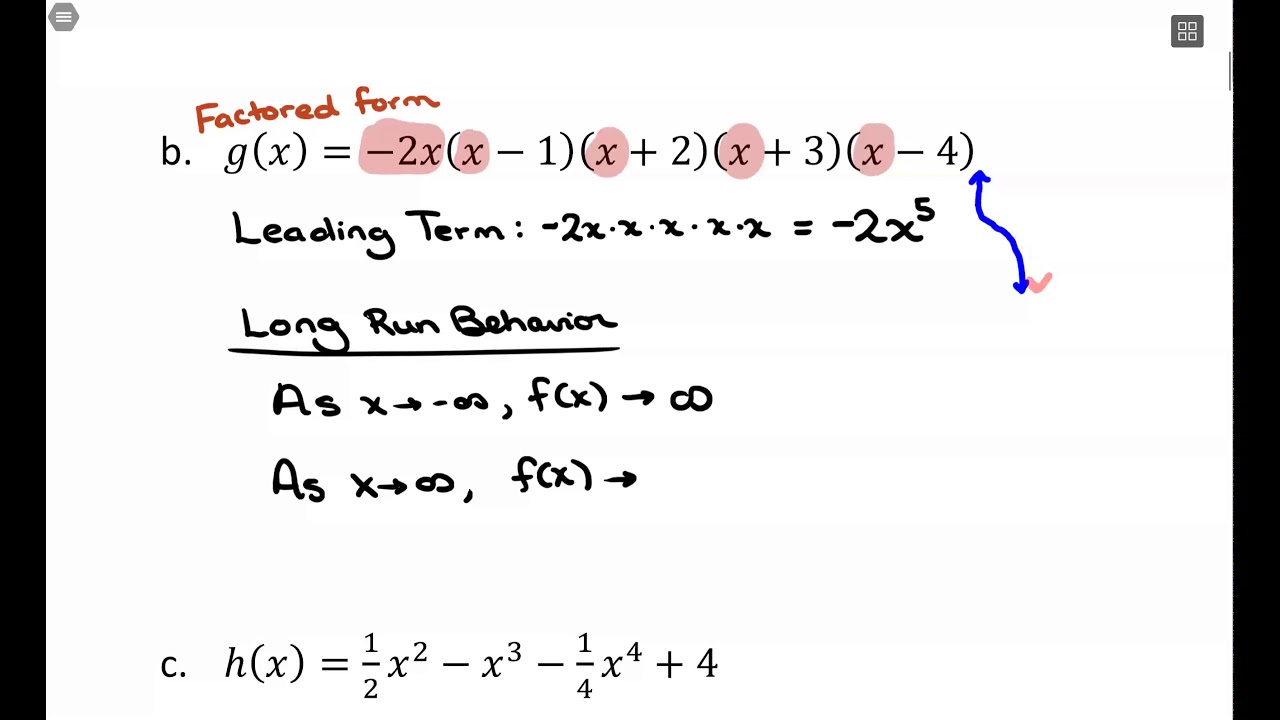 Factored form
b. g(x) = −2x(x − 1)(x + 2)(x + 3)(x − 4)
Leading Term: -2x·x·x·x·x = -2x⁵
Long Run Behavior
As x→-∞, f(x) → ∞
As x→∞, f(x) →
c. h(x) = 1/2 x² − x³ − 1/4 x⁴ + 4